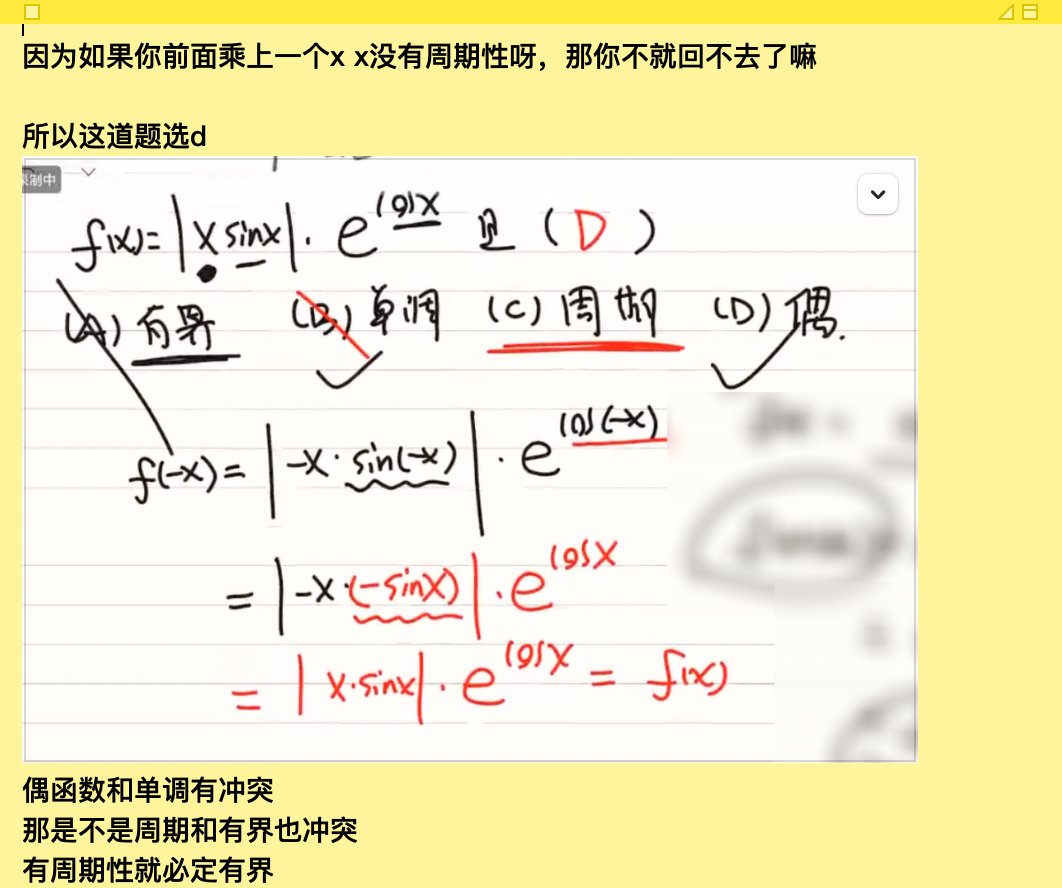 因为如果你前面乘上一个x x没有周期性呀，那你不就回不去了嘛
所以这道题选d
录制中
f(x)=|x sinx|·e^cosx 是（D）
(A)有界 (B)单调 (C)周期 (D)偶.
f(-x)=|-x·sin(-x)|·e^cos(-x)
=|-x·(-sinx)|·e^cosx
=|x·sinx|·e^cosx=f(x)
偶函数和单调有冲突
那是不是周期和有界也冲突
有周期性就必定有界